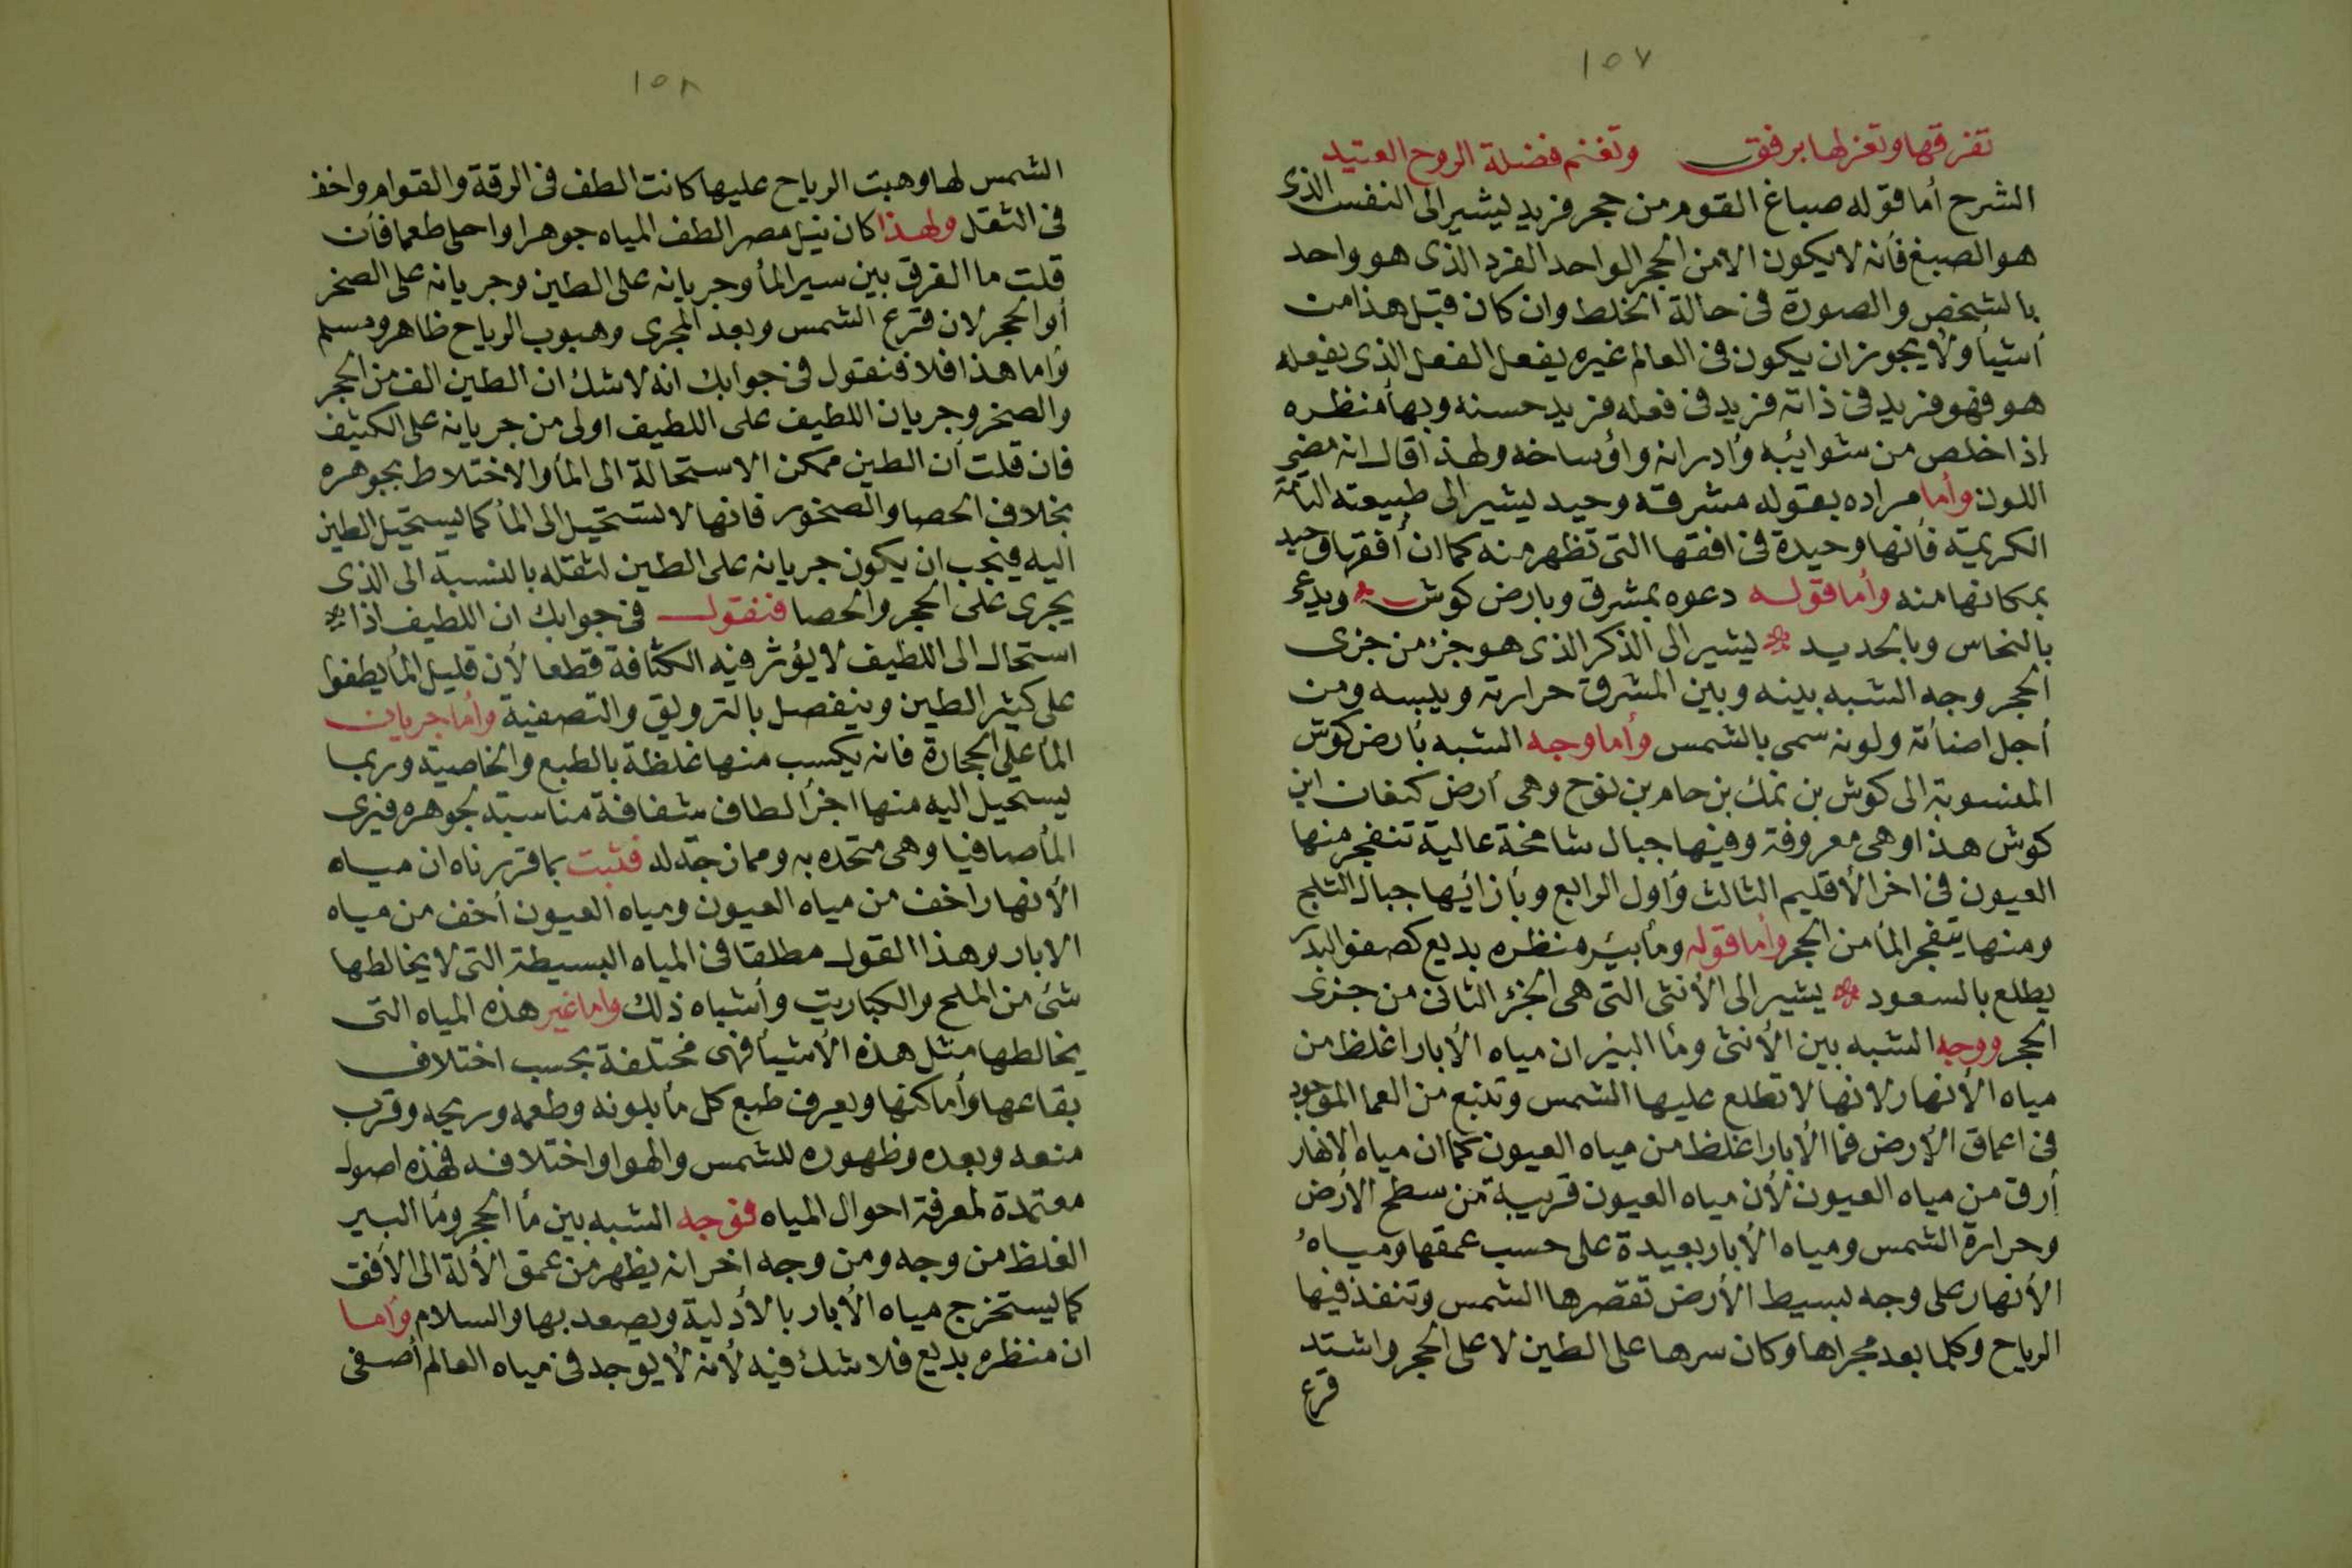 ١٥٧
تفرقها وتغزلها برفق وتغنم فضلة الروح العتيد
الشرح أما قوله صباغ القوم من حجر فريد يشير الى النفس الذى
هو الصبغ فأنه لا يكون الا من الحجر الواحد الفرد الذى هو واحد
بالشخص والصورة فى حالة الخلط وان كان قبل هذا من
أشيأ ولا يجوز ان يكون فى العالم غيره يفعل الفعل الذى يفعله
هو فهو فريد فى ذاته فريد فى فعله فريد حسنه وبهأ منظره
اذا خلص من شوائبه وأدرانه وأوساخه ولهذا قال انه مضى
اللون وأما مراده بقوله مشرقه وحيد يشير الى طبيعته
الكريمة فأنها وحيدة فى افقها التى تظهر منه كما ان أفقها وحيد
بمكانها منه وأما قوله دعوه بمشرق وبارض كوش ويدعى
بالنحاس وبالحديد يشير الى الذكر الذى هو جزء من جزى
الحجر وجه الشبه بينه وبين المشرق حرارته ويبسه ومن
أجل اضأته ولونه سمى بالشمس وأما وجه الشبه بأرض كوش
المنسوبة الى كوش بن نمك بن حام بن نوح وهى أرض كنعان ابن
كوش هذا وهى معروفة وفيها جبال شامخة عالية تنفجر منها
العيون فى اخر الأقليم الثالث وأول الرابع وبأزائها جبال الثلج
ومنها يتفجر المأ من الحجر وأما قوله ومأ بئر منظره بديع كصفو البدر
يطلع بالسعود يشير الى الأنثى التى هى الجزء الثانى من جزى
الحجر ووجه الشبه بين الأنثى ومأ البئر ان مياه الأبار اغلظ من
مياه الأنهار لانها لا تطلع عليها الشمس وتنبع من العما الموجود
فى اعماق الأرض فما الأبار اغلظ من مياه العيون كما ان مياه الانهار
أرق من مياه العيون لأن مياه العيون قريبة من سطح الأرض
وحرارة الشمس ومياه الأبار بعيدة على حسب عمقها ومياه
الأنهار على وجه بسيط الأرض تقصرها الشمس وتنفذ فيها
الرياح وكلما بعد مجراها وكان سرها على الطين لا على الحجر واشتد
قرع
١٥٨
الشمس لها وهبت الرياح عليها كانت الطف فى الرقة والقوام واخف
فى الثقل ولهذا كان نيل مصر الطف المياه جوهرا واحلى طعما فأن
قلت ما الفرق بين سير المأ وجريانه على الطين وجريانه على الصخر
أو الحجر لان قرع الشمس وبعد المجرى وهبوب الرياح ظاهر ومسلم
وأما هذا فلا فنقول فى جوابك انه لا شك ان الطين الف من الحجر
والصخر وجريان اللطيف على اللطيف اولى من جريانه على الكثيف
فان قلت أن الطين ممكن الاستحالة الى المأ والاختلاط بجوهره
بخلاف الحصا والصخور فانها لا تستحيل الى المأ كما يستحيل الطين
اليه فيجب ان يكون جريانه على الطين لثقله بالنسبة الى الذى
يجرى على الحجر والحصا فنقول فى جوابك ان اللطيف اذا
استحال الى اللطيف لا يؤثر فيه الكثافة قطعا لأن قليل المأ يطفوا
على كثير الطين وينفصل بالترويق والتصفية وأما جريان
المأ على الحجارة فانه يكسب منها غلظة بالطبع والخاصية وربما
يستحيل اليه منها اجزأ لطاف شفافة مناسبة لجوهره فيرى
المأ صافيا وهى متحده به وممازجة له فثبت بما قررناه ان مياه
الأنهار اخف من مياه العيون ومياه العيون أخف من مياه
الابار وهذا القول مطلقا فى المياه البسيطة التى لا يخالطها
شئ من الملح والكباريت وأشباه ذلك واما غير هذه المياه التى
يخالطها مثل هذه الأشيأ فهى مختلفة بحسب اختلاف
بقاعها وأماكنها ويعرف طبع كل مأ بلونه وطعمه وريحه وقرب
منعه وبعده وظهوره للشمس والهوا واختلافه فهذه اصول
معتمدة لمعرفة احوال المياه فوجه الشبه بين مأ الحجر ومأ البير
الغلظ من وجه ومن وجه اخر انه يظهر من عمق الألة الى الأفق
كما يستخرج مياه الأبار بالأدلية ويصعد بها والسلام وأما
ان منظره بديع فلا شك فيه لأنه لا يوجد فى مياه العالم أصفى